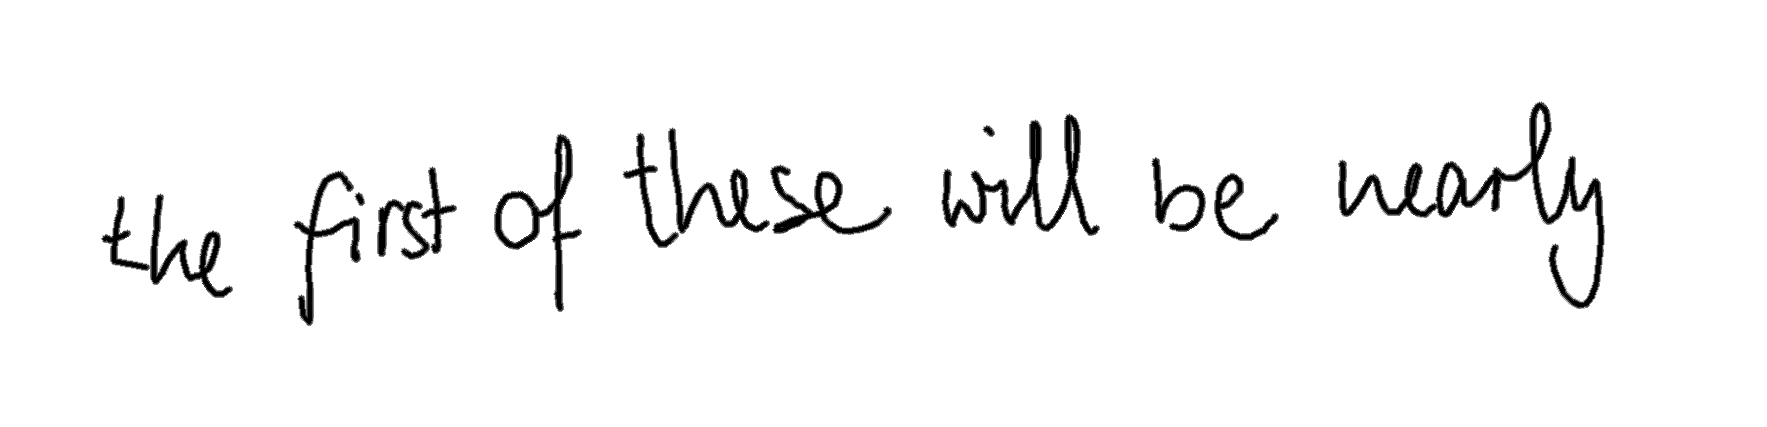 the first of these will be nearly